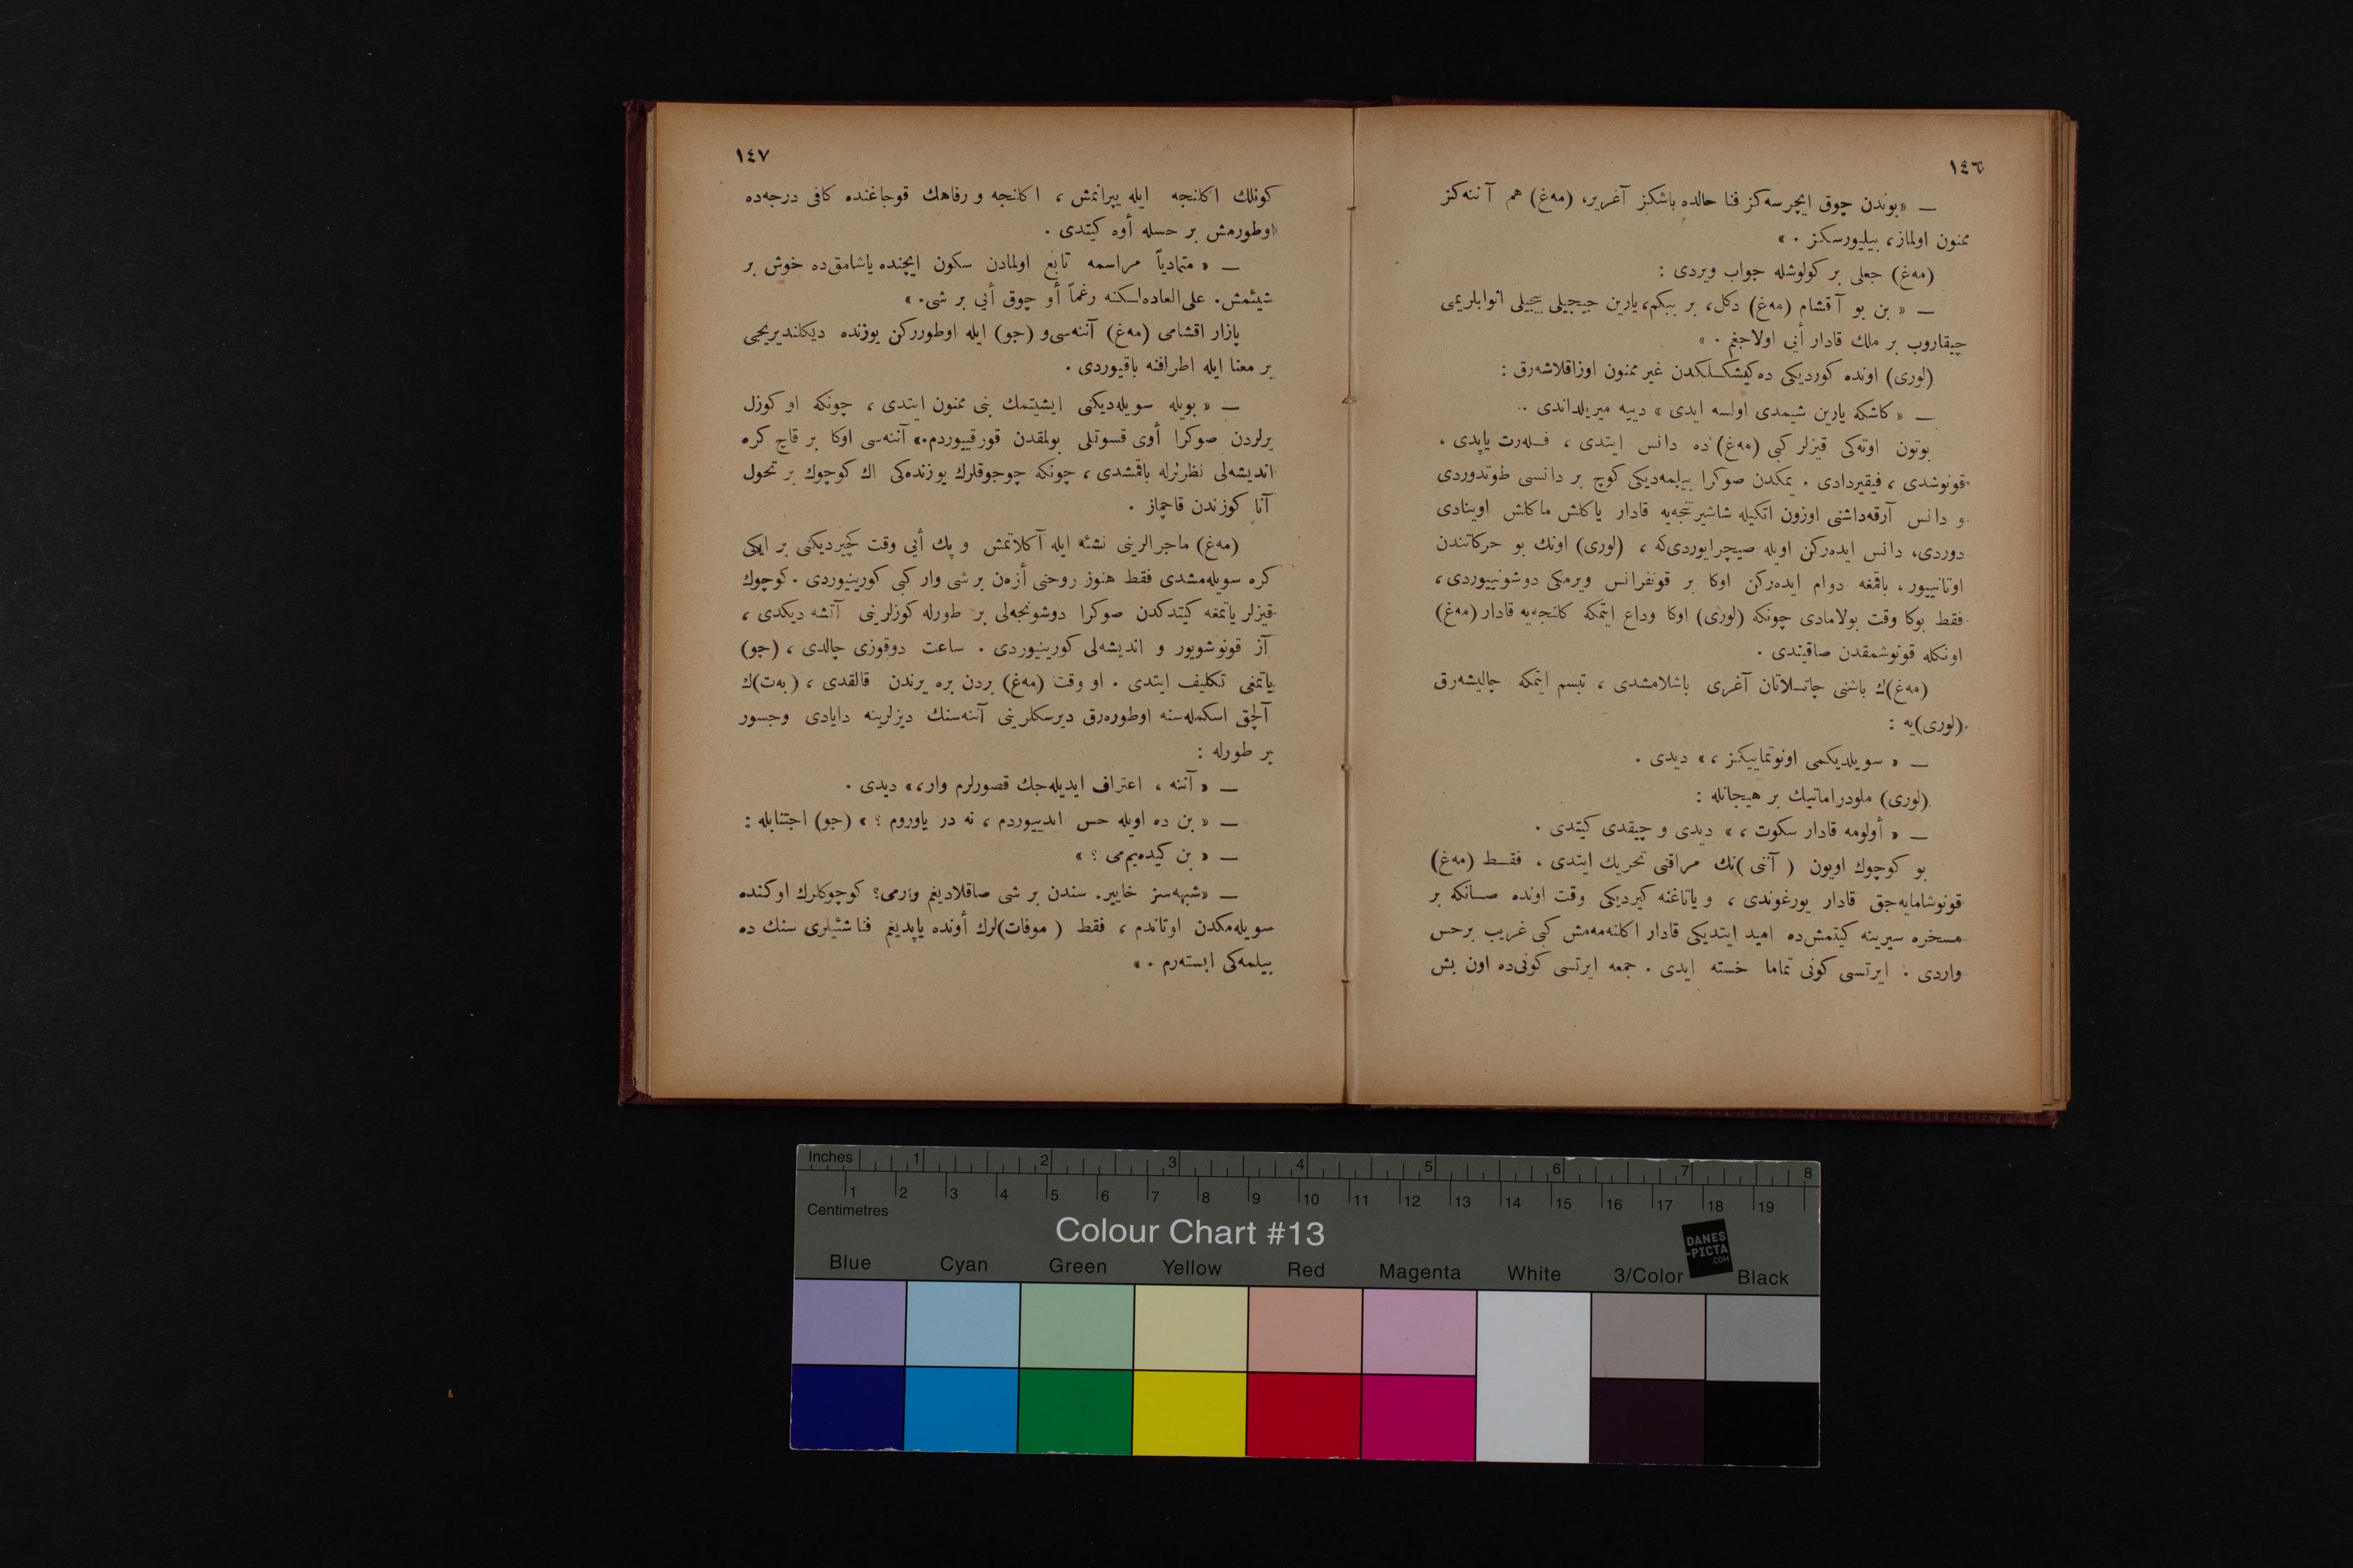 ١٤٦
— «بوندن چوق ایچرسه‌كز فنا حالده باشكز آغریر، (مه‌غ) هم آننه‌كز
ممنون اولماز، بیلیورسكز . »
(مه‌غ) جعلی بر كولوشله جواب ویردی :
— « بن بو آقشام (مه‌غ) دكل، بر ببكم، یارین جیجیلی بیجیلی اثوابلریمی
چیقاروب بر ملك قادار أیی اولاجغم . »
(لوری) اونده كوردیكی ده‌كیشكلكدن غیر ممنون اوزاقلاشه‌رق :
— « كاشكه یارین شیمدی اولسه ایدی » دییه میریلداندی ..
بوتون اوته‌كی قیزلر كبی (مه‌غ) ده دانس ایتدی ، فله‌رت یاپدی ،
قونوشدی ، فیقیردادی . یمكدن صوكرا بیلمه‌دیكی كوچ بر دانسی طوتدوردی
و دانس آرقه‌داشنی اوزون اتكیله شاشیرتنجه‌یه قادار یاكلش ماكلش اوینادی
دوردی، دانس ایده‌ركن اویله صیچرایوردی‌كه ، (لوری) اونك بو حركاتندن
اوتانییور ، باقمغه دوام ایده‌ركن اوكا بر قونفرانس ویرمكی دوشونییوردی ،
فقط بوكا وقت بولامادی چونكه (لوری) اوكا وداع ایتمكه كلنجه‌یه قادار (مه‌غ)
اونكله قونوشمقدن صاقیندی .
(مه‌غ)ك باشنی چاتلاتان آغری باشلامشدی ، تبسم ایتمكه چالیشه‌رق
(لوری)یه :
— « سویلدیكمی اونوتماییكز ، » دیدی .
(لوری) ملودراماتیك بر هیجانله :
— « أولومه قادار سكوت ، » دیدی و چیقدی كیتدی .
بو كوچوك اویون ( آننی )نك مراقنی تحریك ایتدی . فقط (مه‌غ)
قونوشامایه‌جق قادار یورغوندی ، و یاتاغنه كیردیكی وقت اونده صانكه بر
مسخره سیرینه كیتمش‌ده امید ایتدیكی قادار اكلنه‌مه‌مش كبی غریب برحس
واردی . ایرتسی كونی تماما خسته ایدی . جمعه ایرتسی كونی‌ده اون بش
١٤٧
كونلك اكلنجه ایله ییپرانمش ، اكلنجه و رفاهك قوجاغنده كافی درجه‌ده
اوطورمش بر حسله أوه كیتدی .
— « متمادیاً مراسمه تابع اولمادن سكون ایچنده یاشامق‌ده خوش بر
شیئمش. علی‌العاده‌لسكنه رغماً أو چوق أیی بر شی. »
پازار اقشامی (مه‌غ) آننه‌سی‌و (جو) ایله اوطورركن یوزنده دیكلندیریجی
بر معنا ایله اطرافنه باقیوردی .
— « بویله سویله‌دیكنی ایشیتمك بنی ممنون ایتدی ، چونكه او كوزل
یرلردن صوكرا أوی قسوتلی بولمقدن قورقییوردم.» آننه‌سی اوكا بر قاچ كره
اندیشه‌لی نظرلرله باقمشدی ، چونكه چوجوقلرك یوزنده‌كی اك كوچوك بر تحول
آنا كوزندن قاچماز .
(مه‌غ) ماجرالرینی نشئه ایله آكلاتمش و پك أیی وقت كچیردیكنی بر ایكی
كره سویله‌مشدی فقط هنوز روحنی أزه‌ن بر شی وار كبی كورینیوردی . كوچوك
قیزلر یاتمغه كیتدكدن صوكرا دوشونجه‌لی بر طورله كوزلرینی آتشه دیكدی ،
آز قونوشویور و اندیشه‌لی كورینیوردی . ساعت دوقوزی چالدی ، (جو)
یاتمغی تكلیف ایتدی . او وقت (مه‌غ) بردن بره یرندن قالقدی ، (به‌ت)ك
آلچق اسكمله‌سنه اوطوره‌رق دیرسكلرینی آننه‌سنك دیزلرینه دایادی وجسور
بر طورله :
— « آننه ، اعتراف ایدیله‌جك قصورلرم وار، » دیدی .
— « بن ده اویله حس ایدییوردم ، نه در یاوروم ؟ » (جو) اجتنابله :
— « بن كیده‌یم‌می ؟ »
— «شبهه‌سز خاییر. سندن بر شی صاقلادیغم وارمی؟ كوچوكلرك اوكنده
سویله‌مكدن اوتاندم ، فقط ( موفات)لرك أونده یاپدیغم فنا شیئلری سنك ده
بیلمه‌كی ایسته‌رم . »
Inches 1 2 3 4 5 6 7 8
1 2 3 4 5 6 7 8 9 10 11 12 13 14 15 16 17 18 19
Centimetres
Colour Chart #13
DANES
-PICTA
.COM
Blue Cyan Green Yellow Red Magenta White 3/Color Black